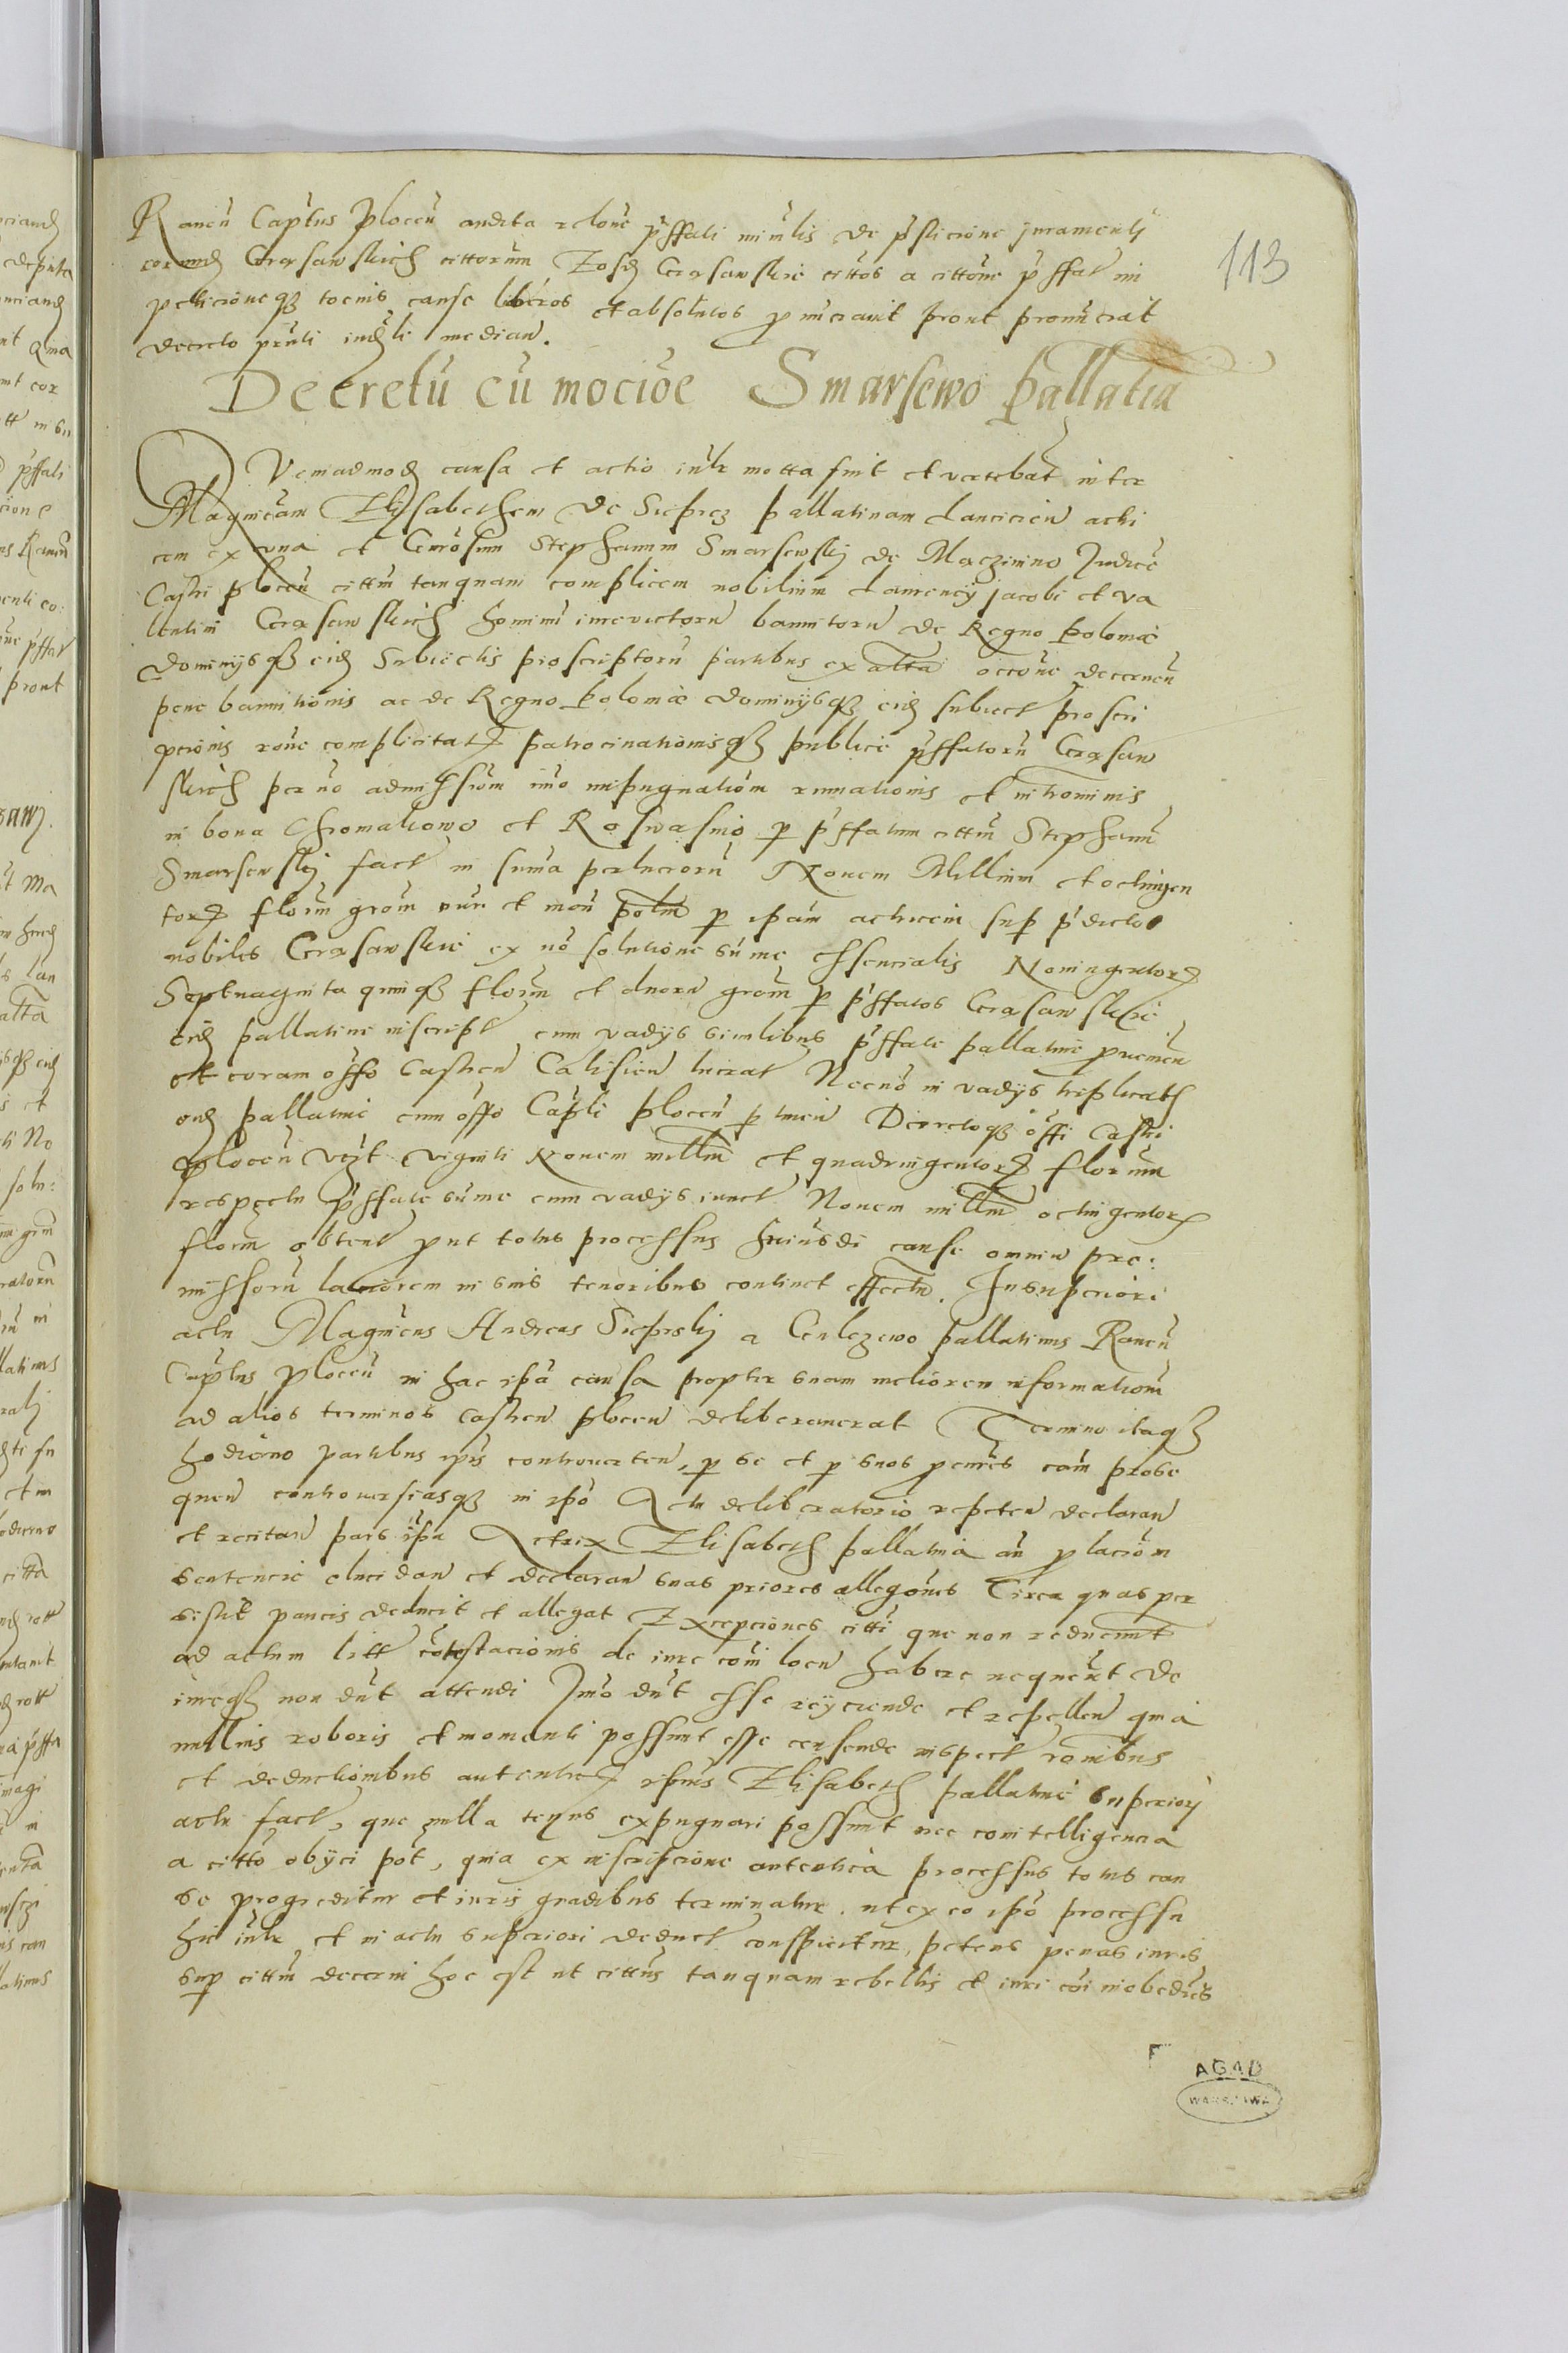 113
Rauen Captus Plocen audita relone pffati minlis de psticione juramenti
eorund Cerasawskich cittorum Eosd Cerasawskie cittos a cittone pffat mi
peticioneqz tocius cause liberos et absolutos pnunciauit prout pronunciat
decreto pnti indli median.
Decretu cu mocioe Smarsewo pallatia
Quemadmod causa et actio inter motta fuit et vertebat inter
Magnificam Elisabethem de Sieprcz pallatinam Lancicien actri
cem ex una et Generosum Stephanum Smarsewskij de Maczimino Judice
Castri plocen cittum tanquam complicem nobilium Laurencij jacobi et va
lentini Cerasawskich hominu inrevictoru bannitoru de Regno Poloniae
dominysqz eid Subiectis proscriptoru partibus ex altra occone decernen
pene bannitionis ac de Regno Polonie dominijsqz eid subiect proscri
pcionis rone complicitat patrocinationisqz publice pffatoru Cerasaw
skich per no admissiom imo impugnationem rumationis et intromiis
in bona Chromakowo et Roswasino p pffatum cittum Stephanu
Smarsewskij fact in suma pecuniaru Nouem Millium et octingen
tor florm grom num et mon polm p ipam actricem sup pdictos
nobiles Cerasawskie ex no solutione sume essencialis Noningentor
Septuaginta quinqz florm et duoru grom p pffatos Cerasawskie
eid pallatine inscript cum vadys similibus pffate pallatine pvemen
et coram offo Castren Calisien lucrat Necno in vadys triplicats
ond pallatine cum offo Capli plocen p lucru Decretoqz offi Castri
plocen vcz viginti Nouem millm et quadringentor florum
respectu pffate sume cum vadys iunct Nouem millm octingentor
florm obtent put totus processus huiusdi cause omniu pre:
missoru latiorem in suis tenoribus continet effectu. In superiori
actu Magnificus Andreas Sieprskij a Cenlezewo pallatinus Rauen
Captus Plocen in hac ipa causa propter suam meliorem informationem
ad alios terminos castren plocen deliberauerat Termino itaqz
hodierno partibus ipis controverten, p se et p suos pcures eam prose
quen controuersiasqz in ipo Actu deliberatorio repeten declaran
et recitan pars ipa Actrix Elisabeth pallatina an placiom
sentencie elucidan et declaran suas priores allegones Circa quas per
sistit paucis deducit et allegat Excepciones citti que non reducunt
ad actum litt cotestacionis de iure com locu habere nequeut de
iureqz non dut attendi Imo dut esse reyciende et repellen quia
nullius roboris et momenti possunt esse censende respect romibus
et deductiombus autentic ipius Elisabeth pallatine superiorj
actu fact, que nulla tenus expugnari possunt nec comtelligencia
a citto obyci pot, quia ex inscripcione autentica processus totus cau
se progreditur et iuris gradibus terminatur. ut ex eo ipo processu
hic inter et in actu superiori deduct conspicitur, petens penas iuris
sup cittum decerni hoc est ut cittus tanquam rebellis et iuri coi inobediens
AGAD
WARSZAWA